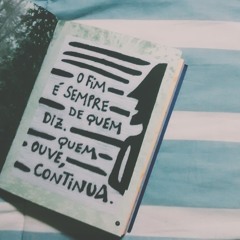 O FIM
É SEMPRE
DE QUEM
DIZ.
QUEM
OUVE,
CONTINUA.